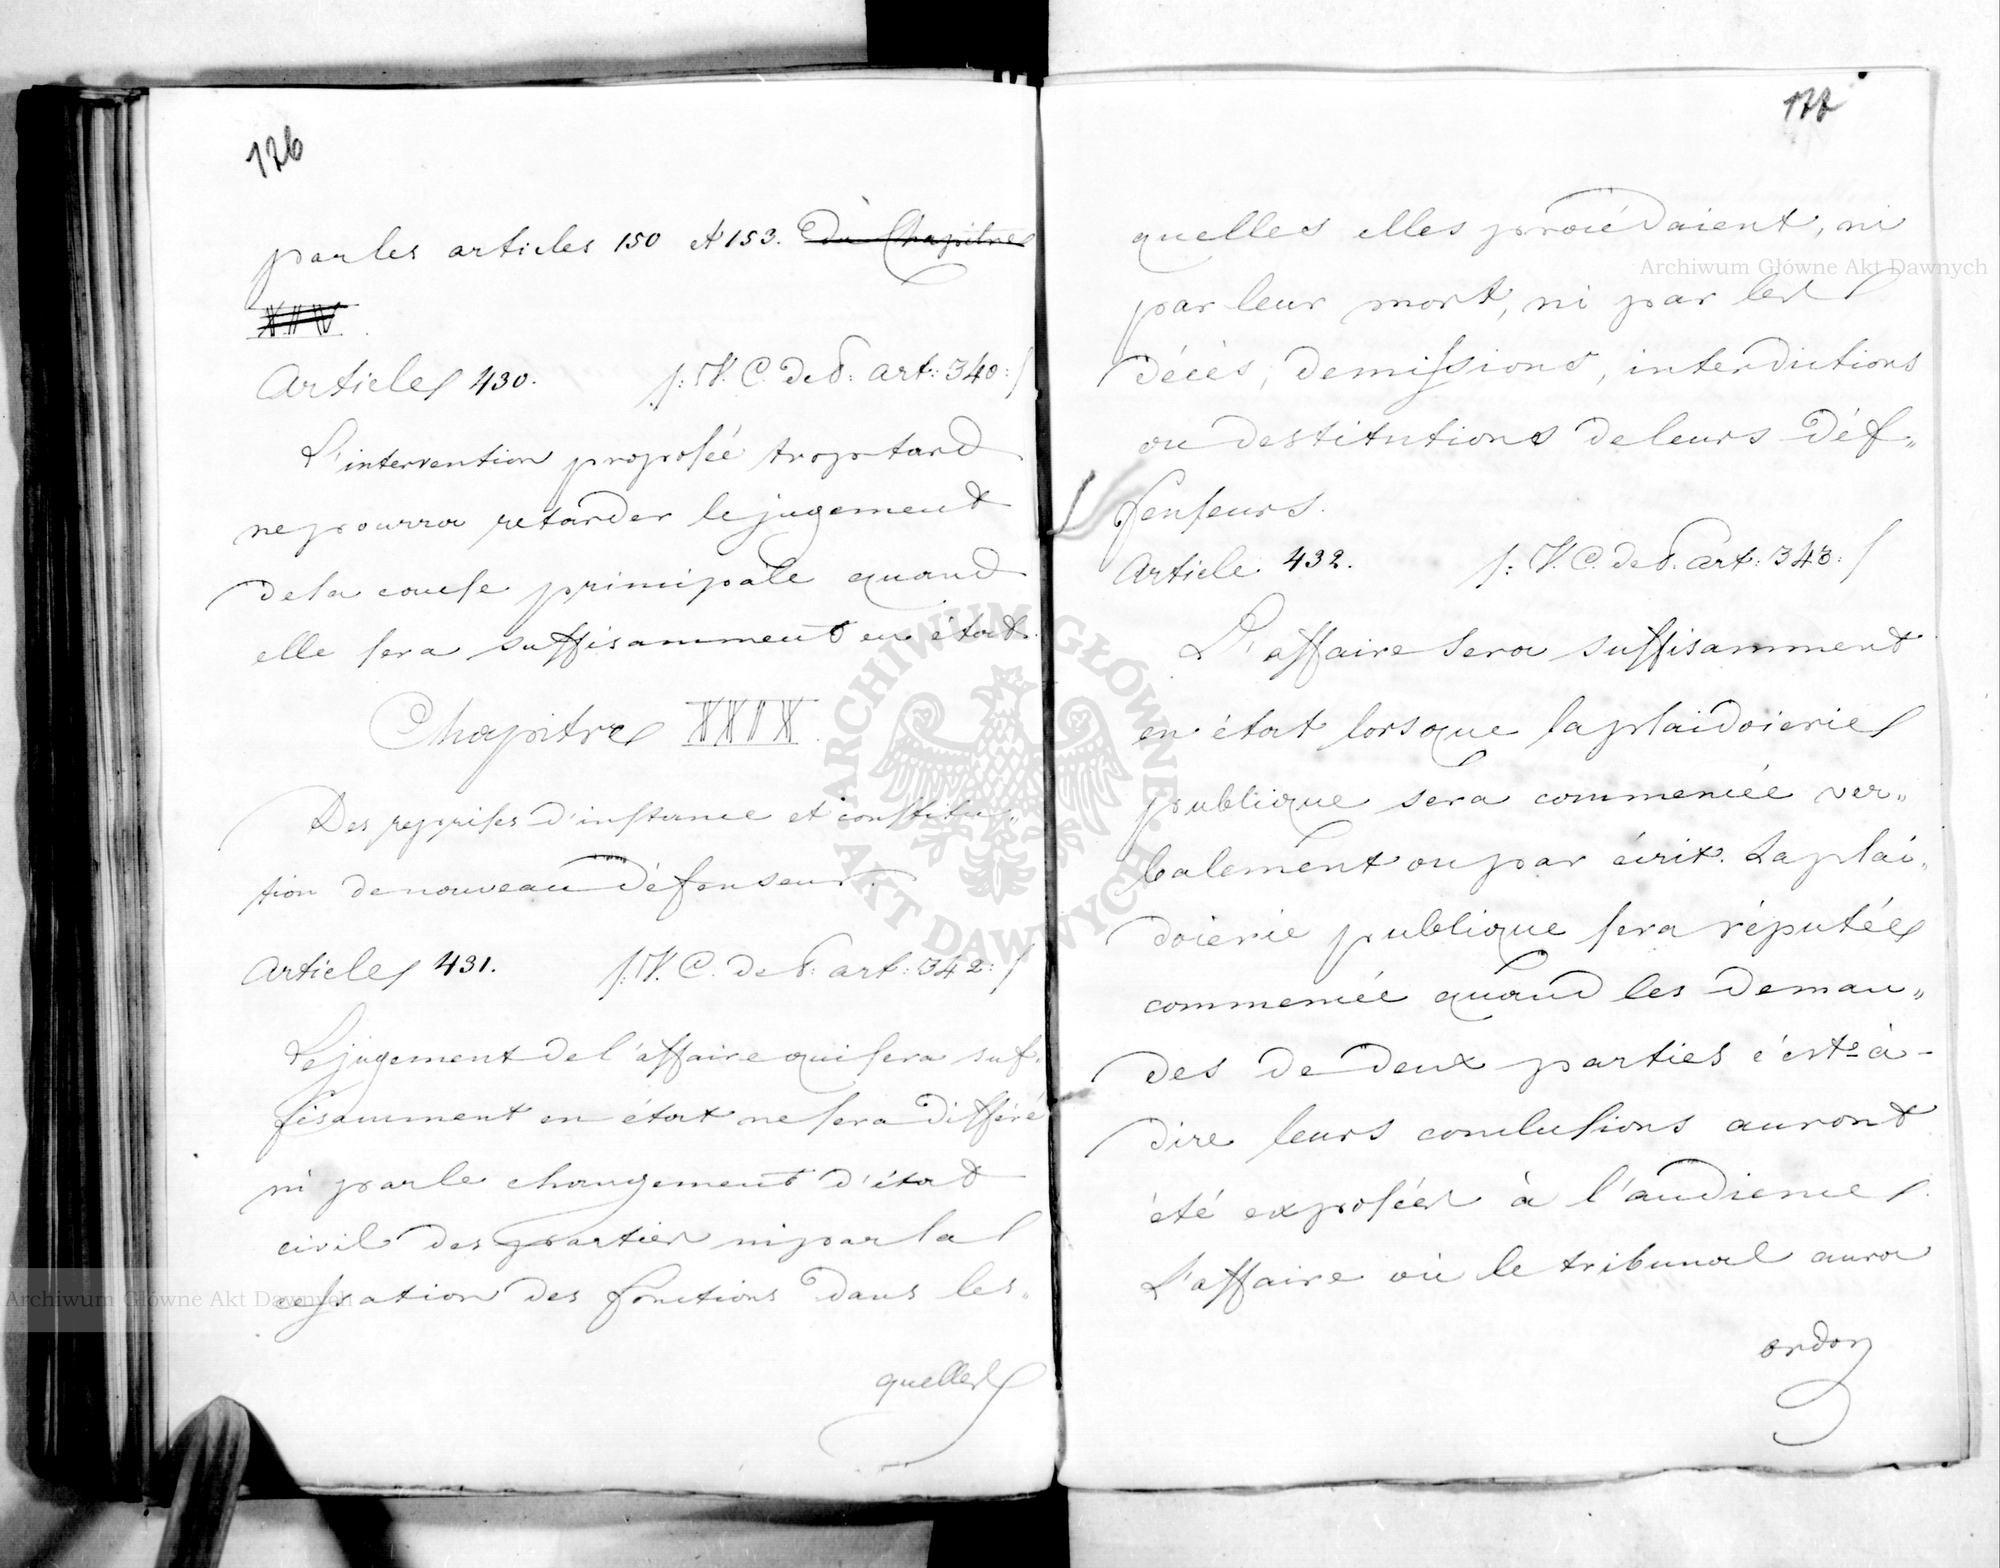 126
par les articles 150 et 153. du Chapitre
XXIV.
Article 430. /: V. C. de P. art: 340 :/
L'intervention proposée trop tard
ne pourra retarder le jugement
de la cause principale quand
elle sera suffisamment en état.
Chapitre XXIX.
Des reprises d'instance et constitu„
tion de nouveau défenseur.
Article 431. /: V. C. de P: art: 342: /
Le jugement de l'affaire qui sera suf„
fisamment en état ne sera différé
ni par le changement d'état
civil des parties ni par la
cessation des fonctions dans les„
quelles
177
quelles elles procédaient, ni
par leur mort, ni par les
décès, demissions, interdictions
ou destitutions de leurs déf„
fenseurs.
Article 432. /: V. C. de P. art: 343: /
L'affaire sera suffisamment
en état lorsque la plaidoierie
publique sera commencée ver„
balement ou par écrit. La plai„
doierie publique sera réputée
commencée quand les deman„
des de deux parties c'est-à-
dire leurs conclusions auront
été exposées à l'audience.
L'affaire où le tribunal aura
ordon
Archiwum Główne Akt Dawnych
Archiwum Główne Akt Dawnych
ARCHIWUM GŁÓWNE AKT DAWNYCH